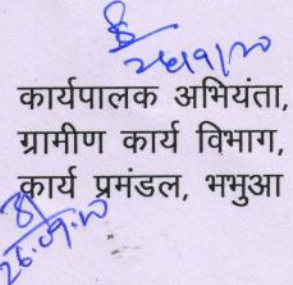 26/9/20
कार्यपालक अभियंता,
ग्रामीण कार्य विभाग,
कार्य प्रमंडल, भभुआ
26.09.20